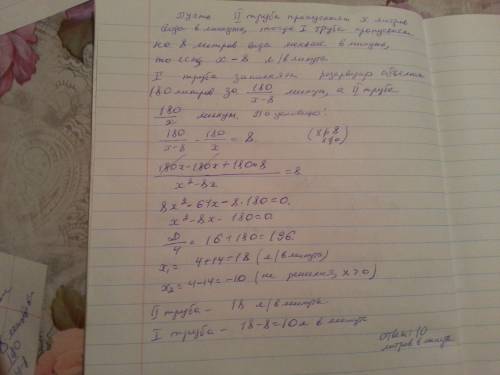 Пусть II труба пропускает x литров
воды в минуту, тогда I труба пропускает
на 8 литров воды меньше в минуту,
то есть x - 8 л/в минуту
I труба заполняет резервуар объемом
180 литров за 180/(x-8) минут, а II труба
180/x минут. По условию:
180/(x-8) - 180/x = 8. (x≠8 x≠0)
(180x - 180x + 180·8)/(x² - 8x) = 8
8x² - 64x - 8·180 = 0.
x² - 8x - 180 = 0.
D/4 = 16 + 180 = 196.
x₁ = 4+14 = 18 (л/в минуту)
x₂ = 4-14 = -10 (не решение, x>0)
II труба - 18 л/в минуту
I труба - 18-8=10 л в минуту
ответ: 10
литров в минуту